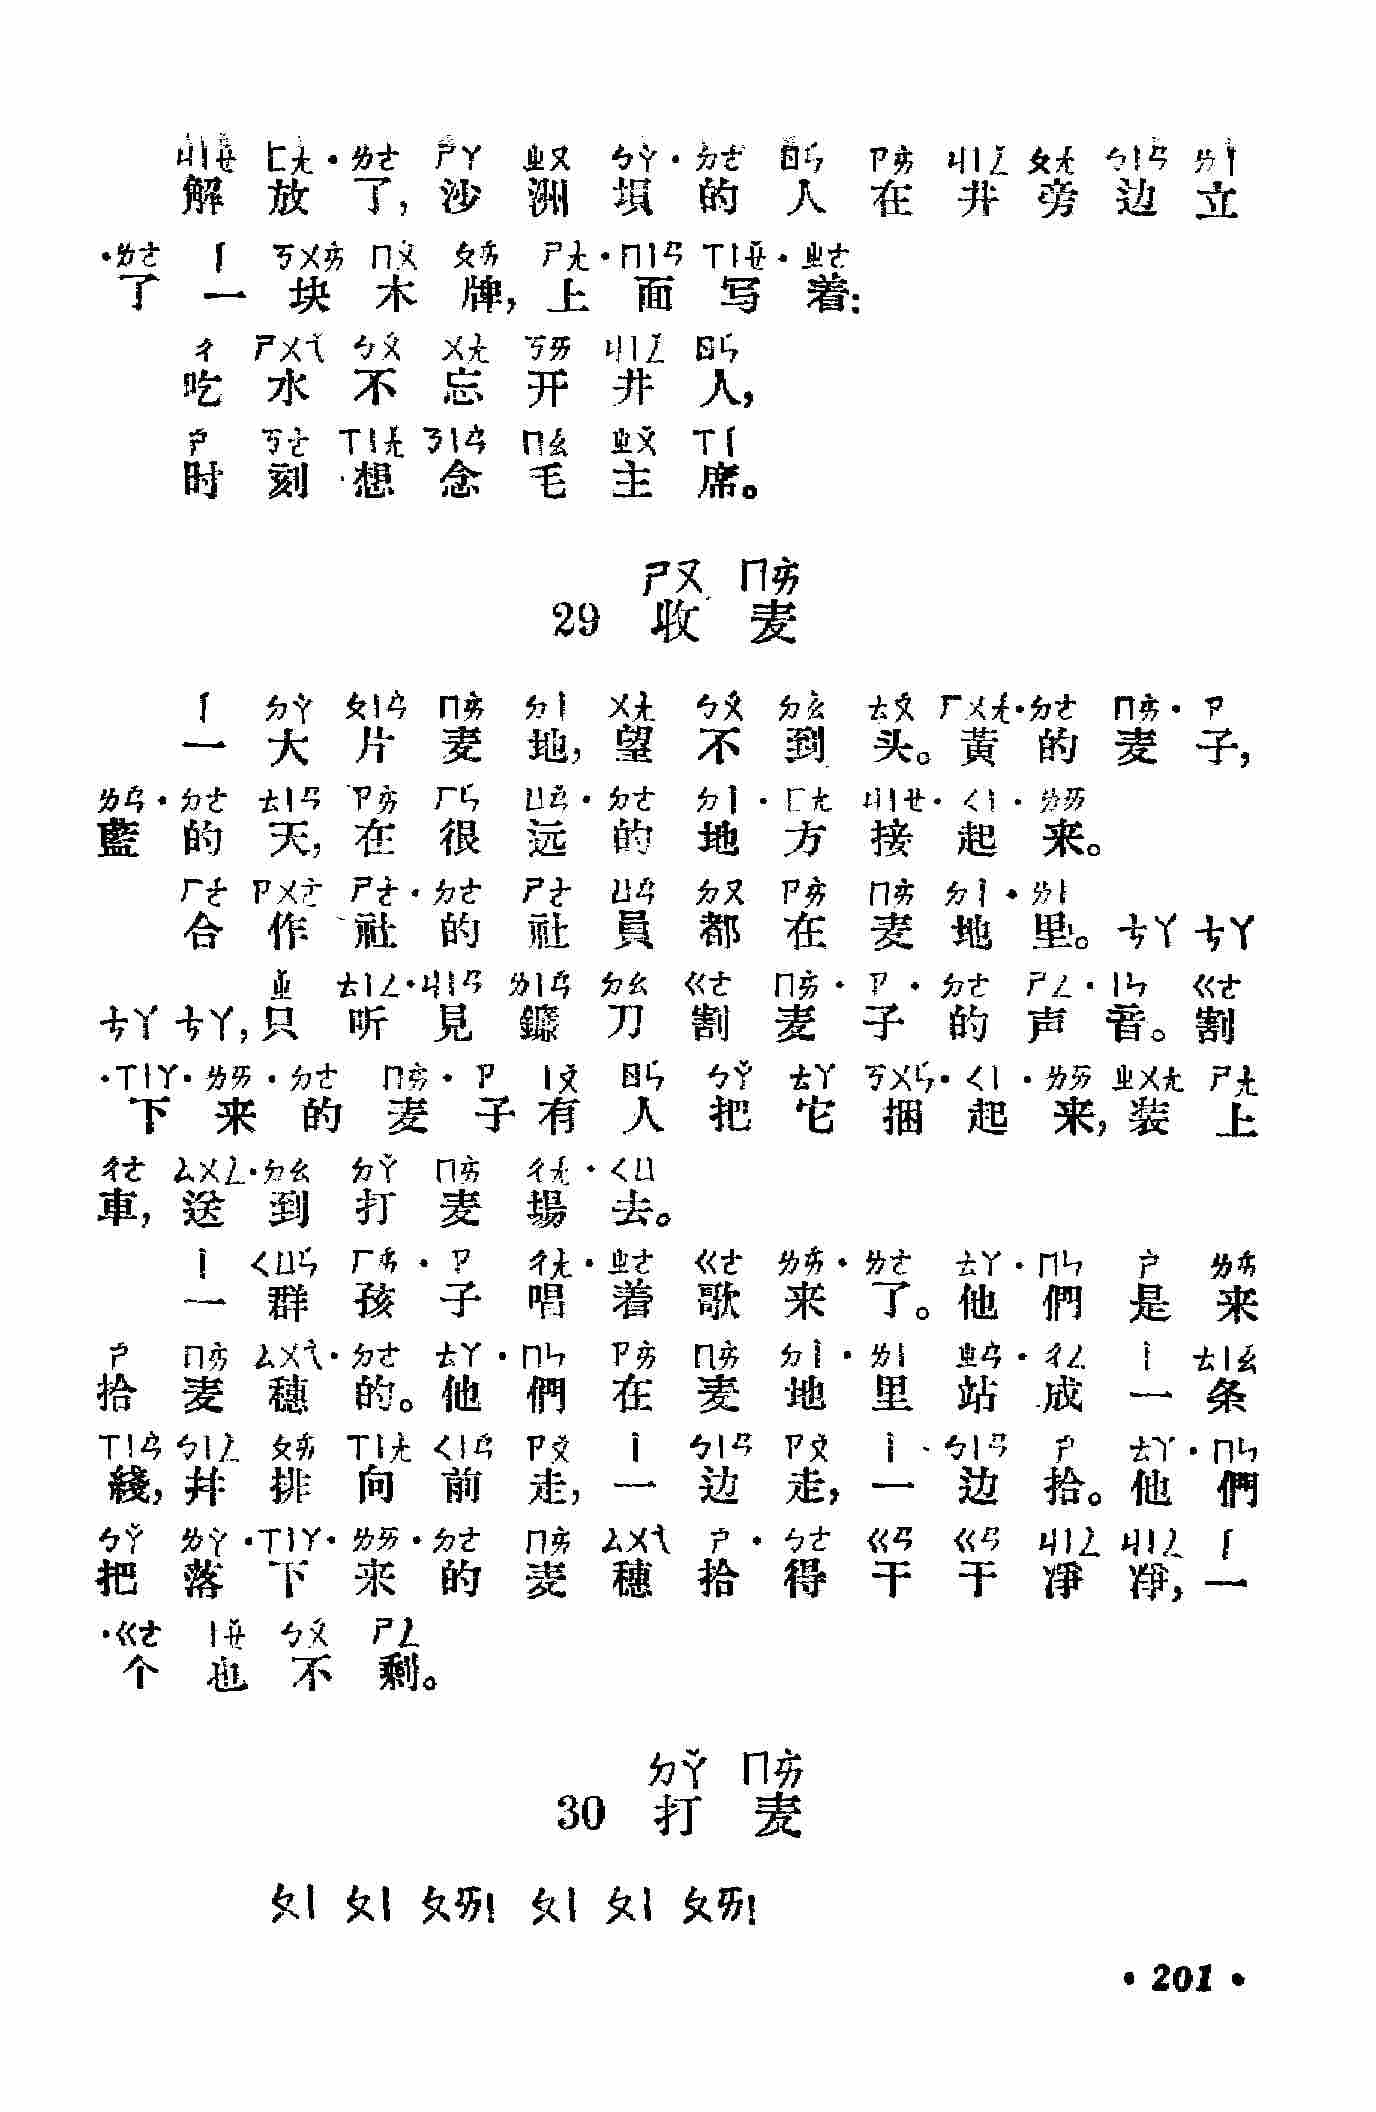 ㄐㄧㄝˇ ㄈㄤˋ·ㄌㄜ ㄕㄚ ㄓㄡ ㄅㄚˋ·ㄉㄜ ㄖㄣˊ ㄗㄞˋ ㄐㄧㄥˇ ㄆㄤˊ ㄅㄧㄢ ㄌㄧˋ
解放了,沙洲垻的人在井旁边立
·ㄌㄜ ㄧˊ ㄎㄨㄞˋ ㄇㄨˋ ㄆㄞˊ ㄕㄤˋ·ㄇㄧㄢ ㄒㄧㄝˇ·ㄓㄜ
了一块木牌,上面写着:
ㄔ ㄕㄨㄟˇ ㄅㄨˊ ㄨㄤˋ ㄎㄞ ㄐㄧㄥˇ ㄖㄣˊ
吃水不忘开井人,
ㄕˊ ㄎㄜˋ ㄒㄧㄤˇ ㄋㄧㄢˋ ㄇㄠˊ ㄓㄨˇ ㄒㄧˊ
时刻想念毛主席。
ㄕㄡ ㄇㄞˋ
29 收麦
ㄧˊ ㄉㄚˋ ㄆㄧㄢˋ ㄇㄞˋ ㄉㄧˋ ㄨㄤˋ ㄅㄨˊ ㄉㄠˋ ㄊㄡˊ ㄏㄨㄤˊ·ㄉㄜ ㄇㄞˋ·ㄗ
一大片麦地,望不到头。黄的麦子,
ㄌㄢˊ·ㄉㄜ ㄊㄧㄢ ㄗㄞˋ ㄏㄣˇ ㄩㄢˇ·ㄉㄜ ㄉㄧˋ·ㄈㄤ ㄐㄧㄝ·ㄑㄧ·ㄌㄞ
藍的天,在很远的地方接起来。
ㄏㄜˊ ㄗㄨㄛˋ ㄕㄜˋ·ㄉㄜ ㄕㄜˋ ㄩㄢˊ ㄉㄡ ㄗㄞˋ ㄇㄞˋ ㄉㄧˋ·ㄌㄧ
合作社的社員都在麦地里。ㄘㄚ ㄘㄚ
ㄓˇ ㄊㄧㄥ·ㄐㄧㄢ ㄌㄧㄢˊ ㄉㄠ ㄍㄜ ㄇㄞˋ·ㄗ·ㄉㄜ ㄕㄥ·ㄧㄣ ㄍㄜ
ㄘㄚ ㄘㄚ,只听見鐮刀割麦子的声音。割
·ㄒㄧㄚ·ㄌㄞ·ㄉㄜ ㄇㄞˋ·ㄗ ㄧㄡˇ ㄖㄣˊ ㄅㄚˇ ㄊㄚ ㄎㄨㄣˇ·ㄑㄧ·ㄌㄞ ㄓㄨㄤ ㄕㄤˋ
下来的麦子有人把它捆起来,装上
ㄔㄜ ㄙㄨㄥˋ·ㄉㄠ ㄉㄚˇ ㄇㄞˋ ㄔㄤˊ·ㄑㄩ
車,送到打麦場去。
ㄧˋ ㄑㄩㄣˊ ㄏㄞˊ·ㄗ ㄔㄤˋ·ㄓㄜ ㄍㄜ ㄌㄞˊ·ㄌㄜ ㄊㄚ·ㄇㄣ ㄕˋ ㄌㄞˊ
一群孩子唱着歌来了。他們是来
ㄕˊ ㄇㄞˋ ㄙㄨㄟˋ·ㄉㄜ ㄊㄚ·ㄇㄣ ㄗㄞˋ ㄇㄞˋ ㄉㄧˋ·ㄌㄧ ㄓㄢˋ·ㄔㄥ ㄧˋ ㄊㄧㄠˊ
拾麦穗的。他們在麦地里站成一条
ㄒㄧㄢˋ ㄅㄧㄥˋ ㄆㄞˊ ㄒㄧㄤˋ ㄑㄧㄢˊ ㄗㄡˇ ㄧˋ ㄅㄧㄢ ㄗㄡˇ ㄧˋ ㄅㄧㄢ ㄕˊ ㄊㄚ·ㄇㄣ
綫,并排向前走,一边走,一边拾。他們
ㄅㄚˇ ㄌㄚˋ·ㄒㄧㄚ·ㄌㄞ·ㄉㄜ ㄇㄞˋ ㄙㄨㄟˋ ㄕˊ·ㄉㄜ ㄍㄢ ㄍㄢ ㄐㄧㄥˋ ㄐㄧㄥˋ ㄧˊ
把落下来的麦穗拾得干干凈凈,一
·ㄍㄜ ㄧㄝˇ ㄅㄨˊ ㄕㄥˋ
个也不剩。
ㄉㄚˇ ㄇㄞˋ
30 打麦
ㄆㄧ ㄆㄧ ㄆㄞ! ㄆㄧ ㄆㄧ ㄆㄞ!
• 201 •